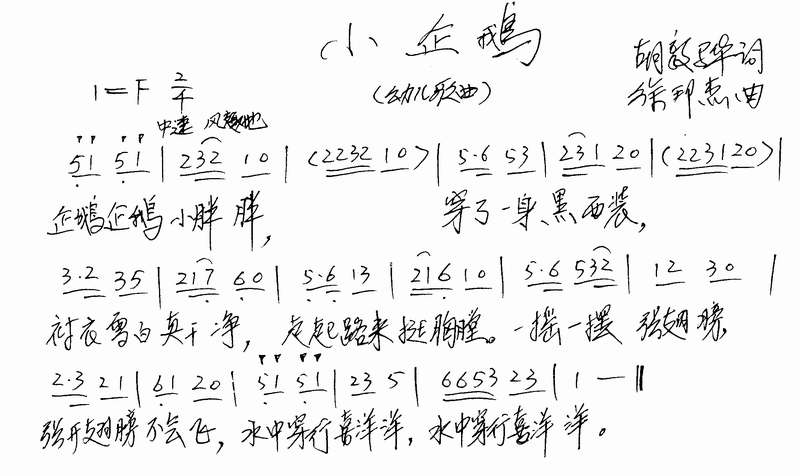 小企鹅
1=F 2/4 (幼儿歌曲) 胡敦骅词
中速 风趣地 徐邦杰曲
51 51 | 232 10 | (2232 10) | 5·6 53 | 231 20 | (223120) |
企鹅企鹅小胖胖, 穿了一身黑西装,
3·2 35 | 217 60 | 5·6 13 | 216 10 | 5·6 532 | 12 30 |
衬衣雪白真干净, 走起路来挺胸膛。一摇一摆 张翅膀,
2·3 21 | 61 20 | 51 51 | 23 5 | 6653 23 | 1 — ‖
张开翅膀不会飞, 水中穿行喜洋洋, 水中穿行喜洋洋。